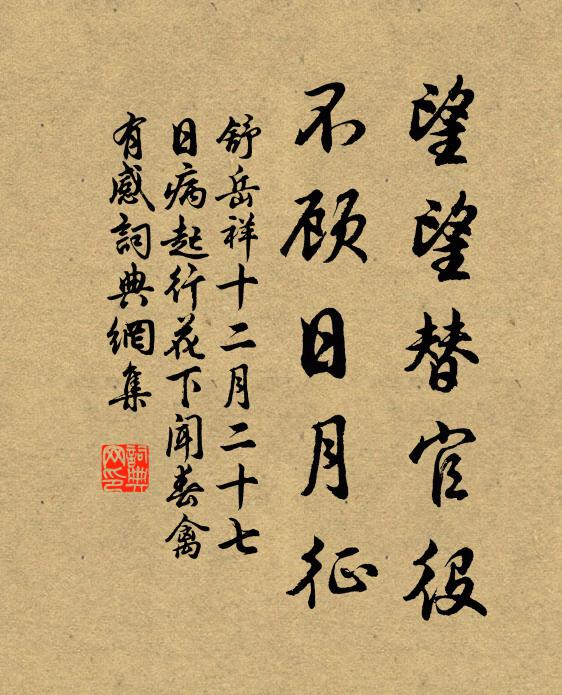 望望替官役
不顾日月征
舒岳祥十二月二十七
日病起行花下闻春禽
有感詞典網集
詞典网印